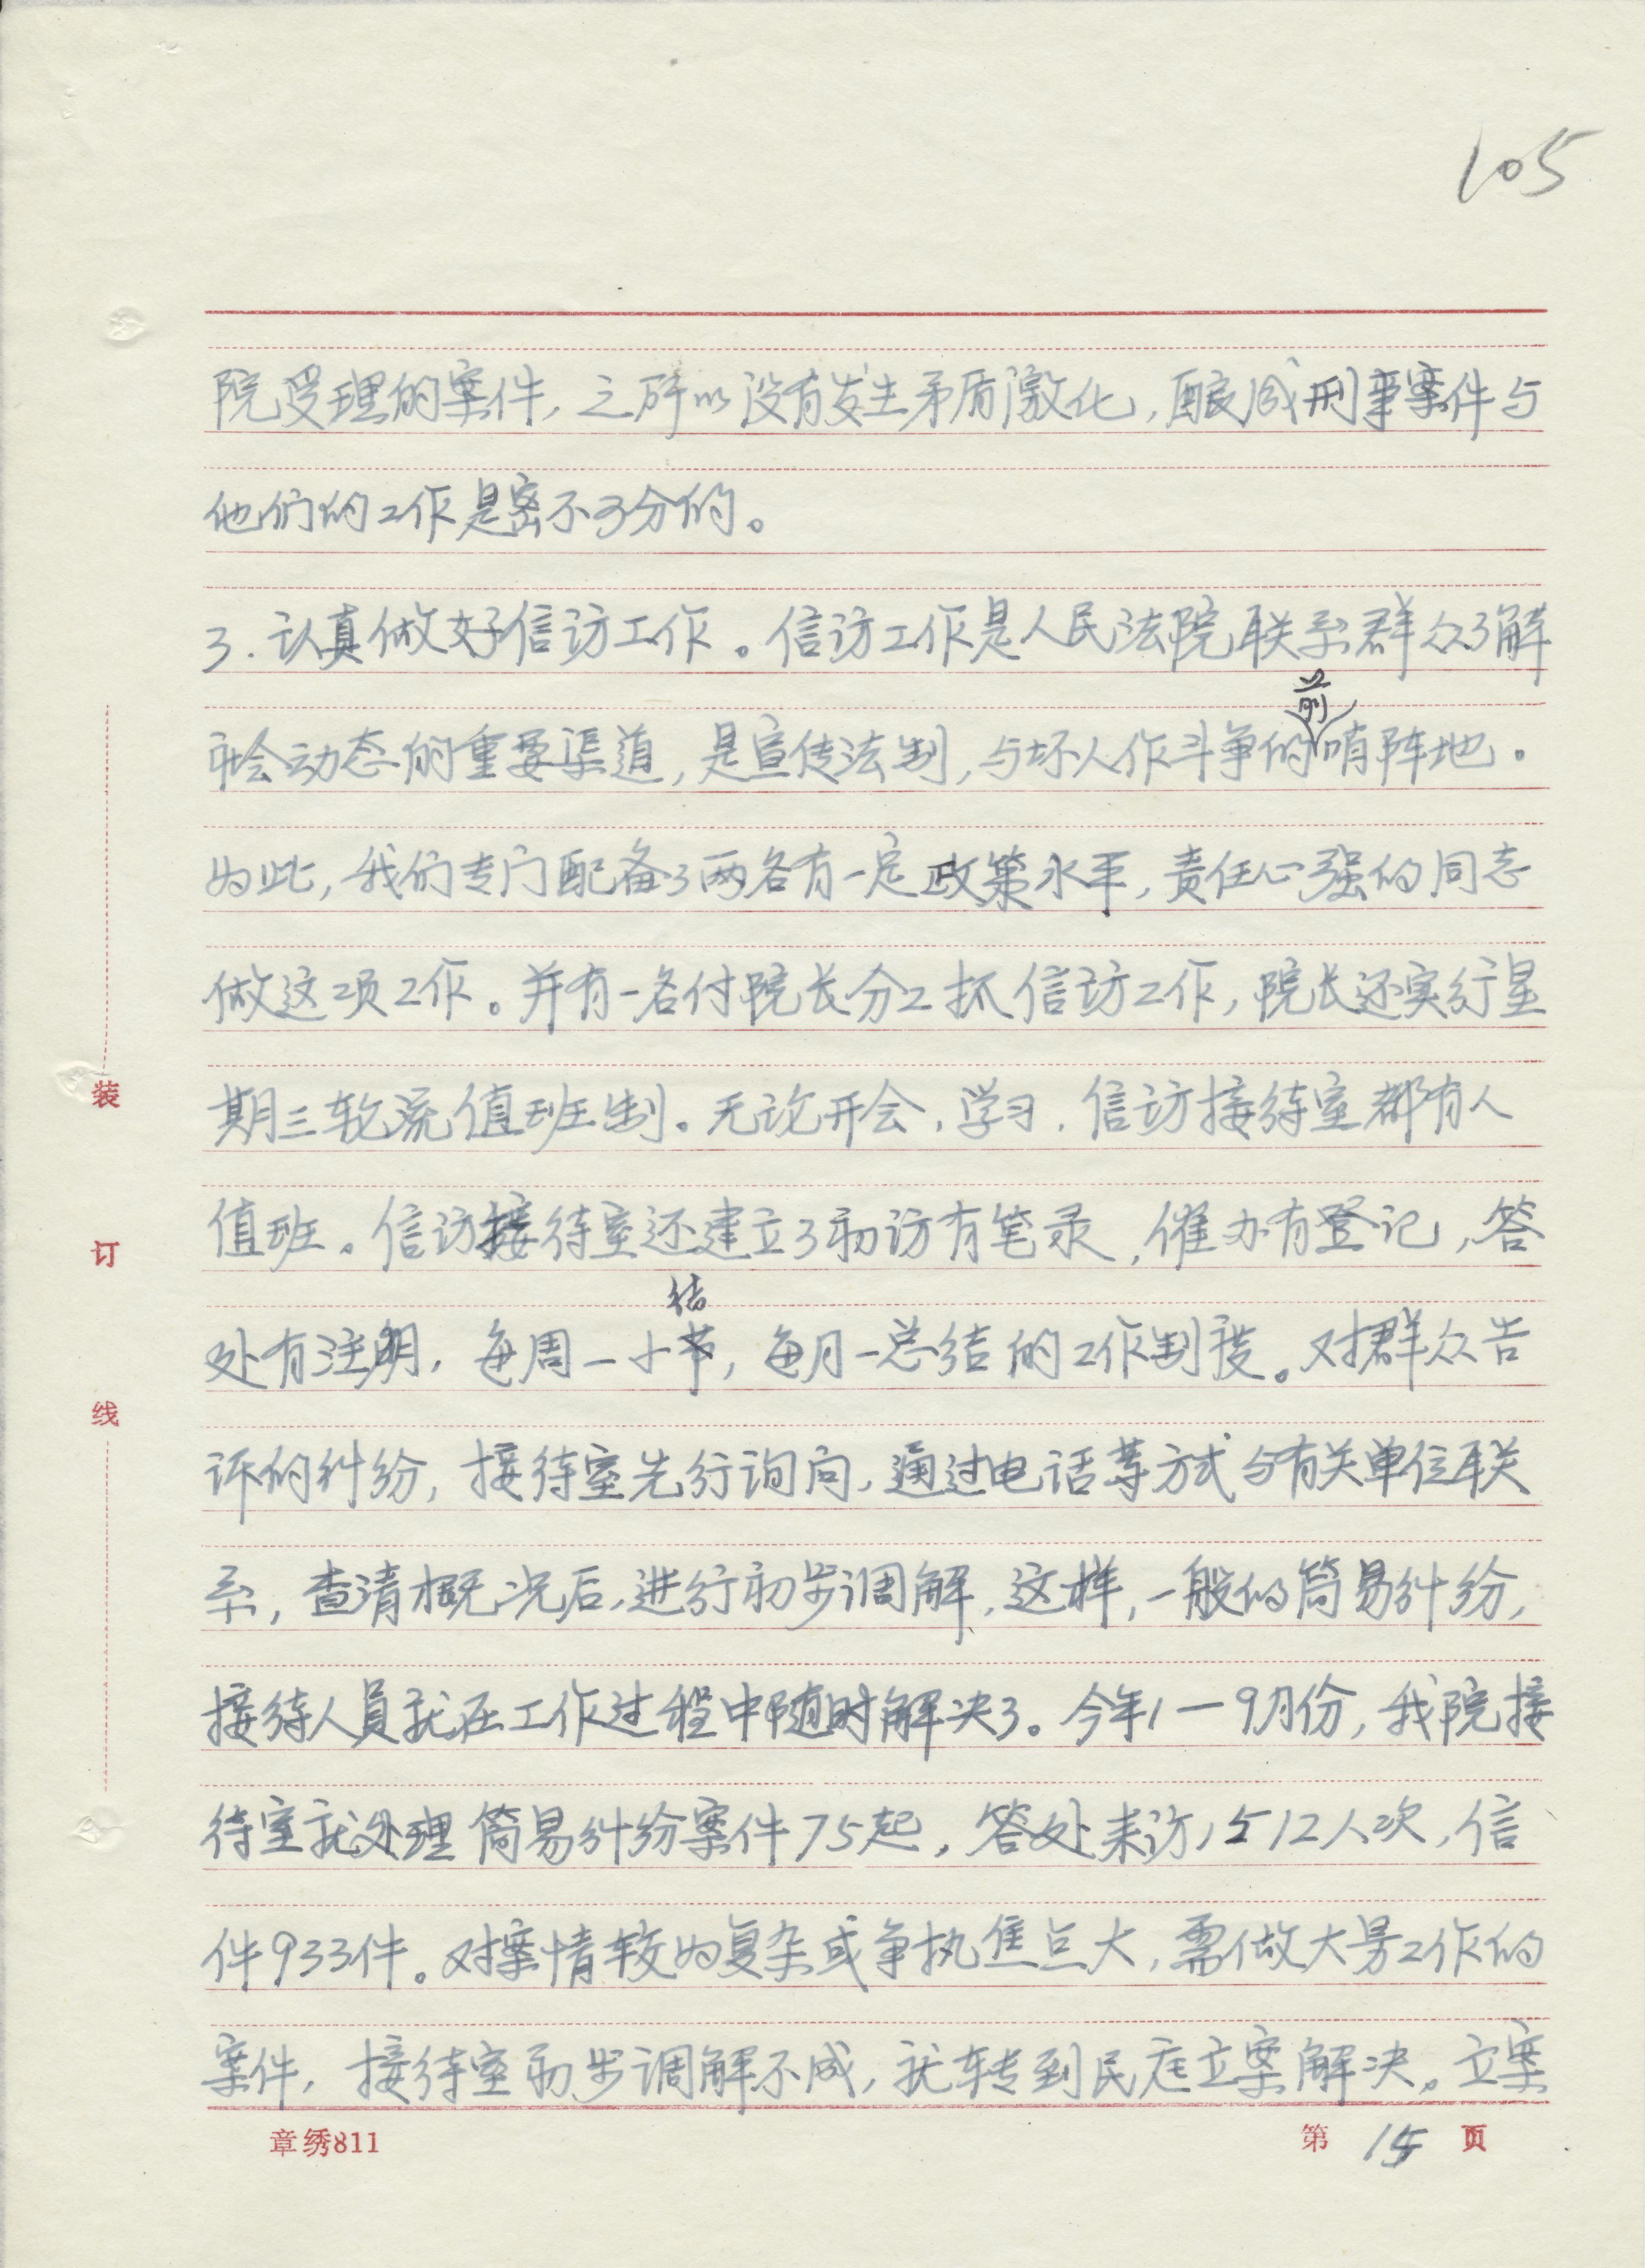 105
院受理的案件，之所以没有发生矛盾激化，酿成刑事案件与
他们的工作是密不可分的。
3.认真做好信访工作。信访工作是人民法院联系群众了解
社会动态的重要渠道，是宣传法制，与坏人作斗争的前哨阵地。
为此，我们专门配备了两名有一定政策水平，责任心强的同志
做这项工作。并有一名付院长分工抓信访工作，院长还实行星
期三轮流值班制。无论开会，学习，信访接待室都有人
值班。信访接待室还建立了初访有笔录，催办有登记，答
处有注明，每周一小结，每月一总结的工作制度。对群众告
诉的纠纷，接待室先行询问，通过电话等方式与有关单位联
系，查清概况后，进行初步调解，这样，一般的简易纠纷，
接待人员就在工作过程中随时解决了。今年1一9月份，我院接
待室就处理简易纠纷案件75起，答处来访1512人次，信
件933件。对案情较为复杂或争执焦点大，需做大量工作的
案件，接待室初步调解不成，就转到民庭立案解决。立案
装
订
线
章绣811
第 15 页